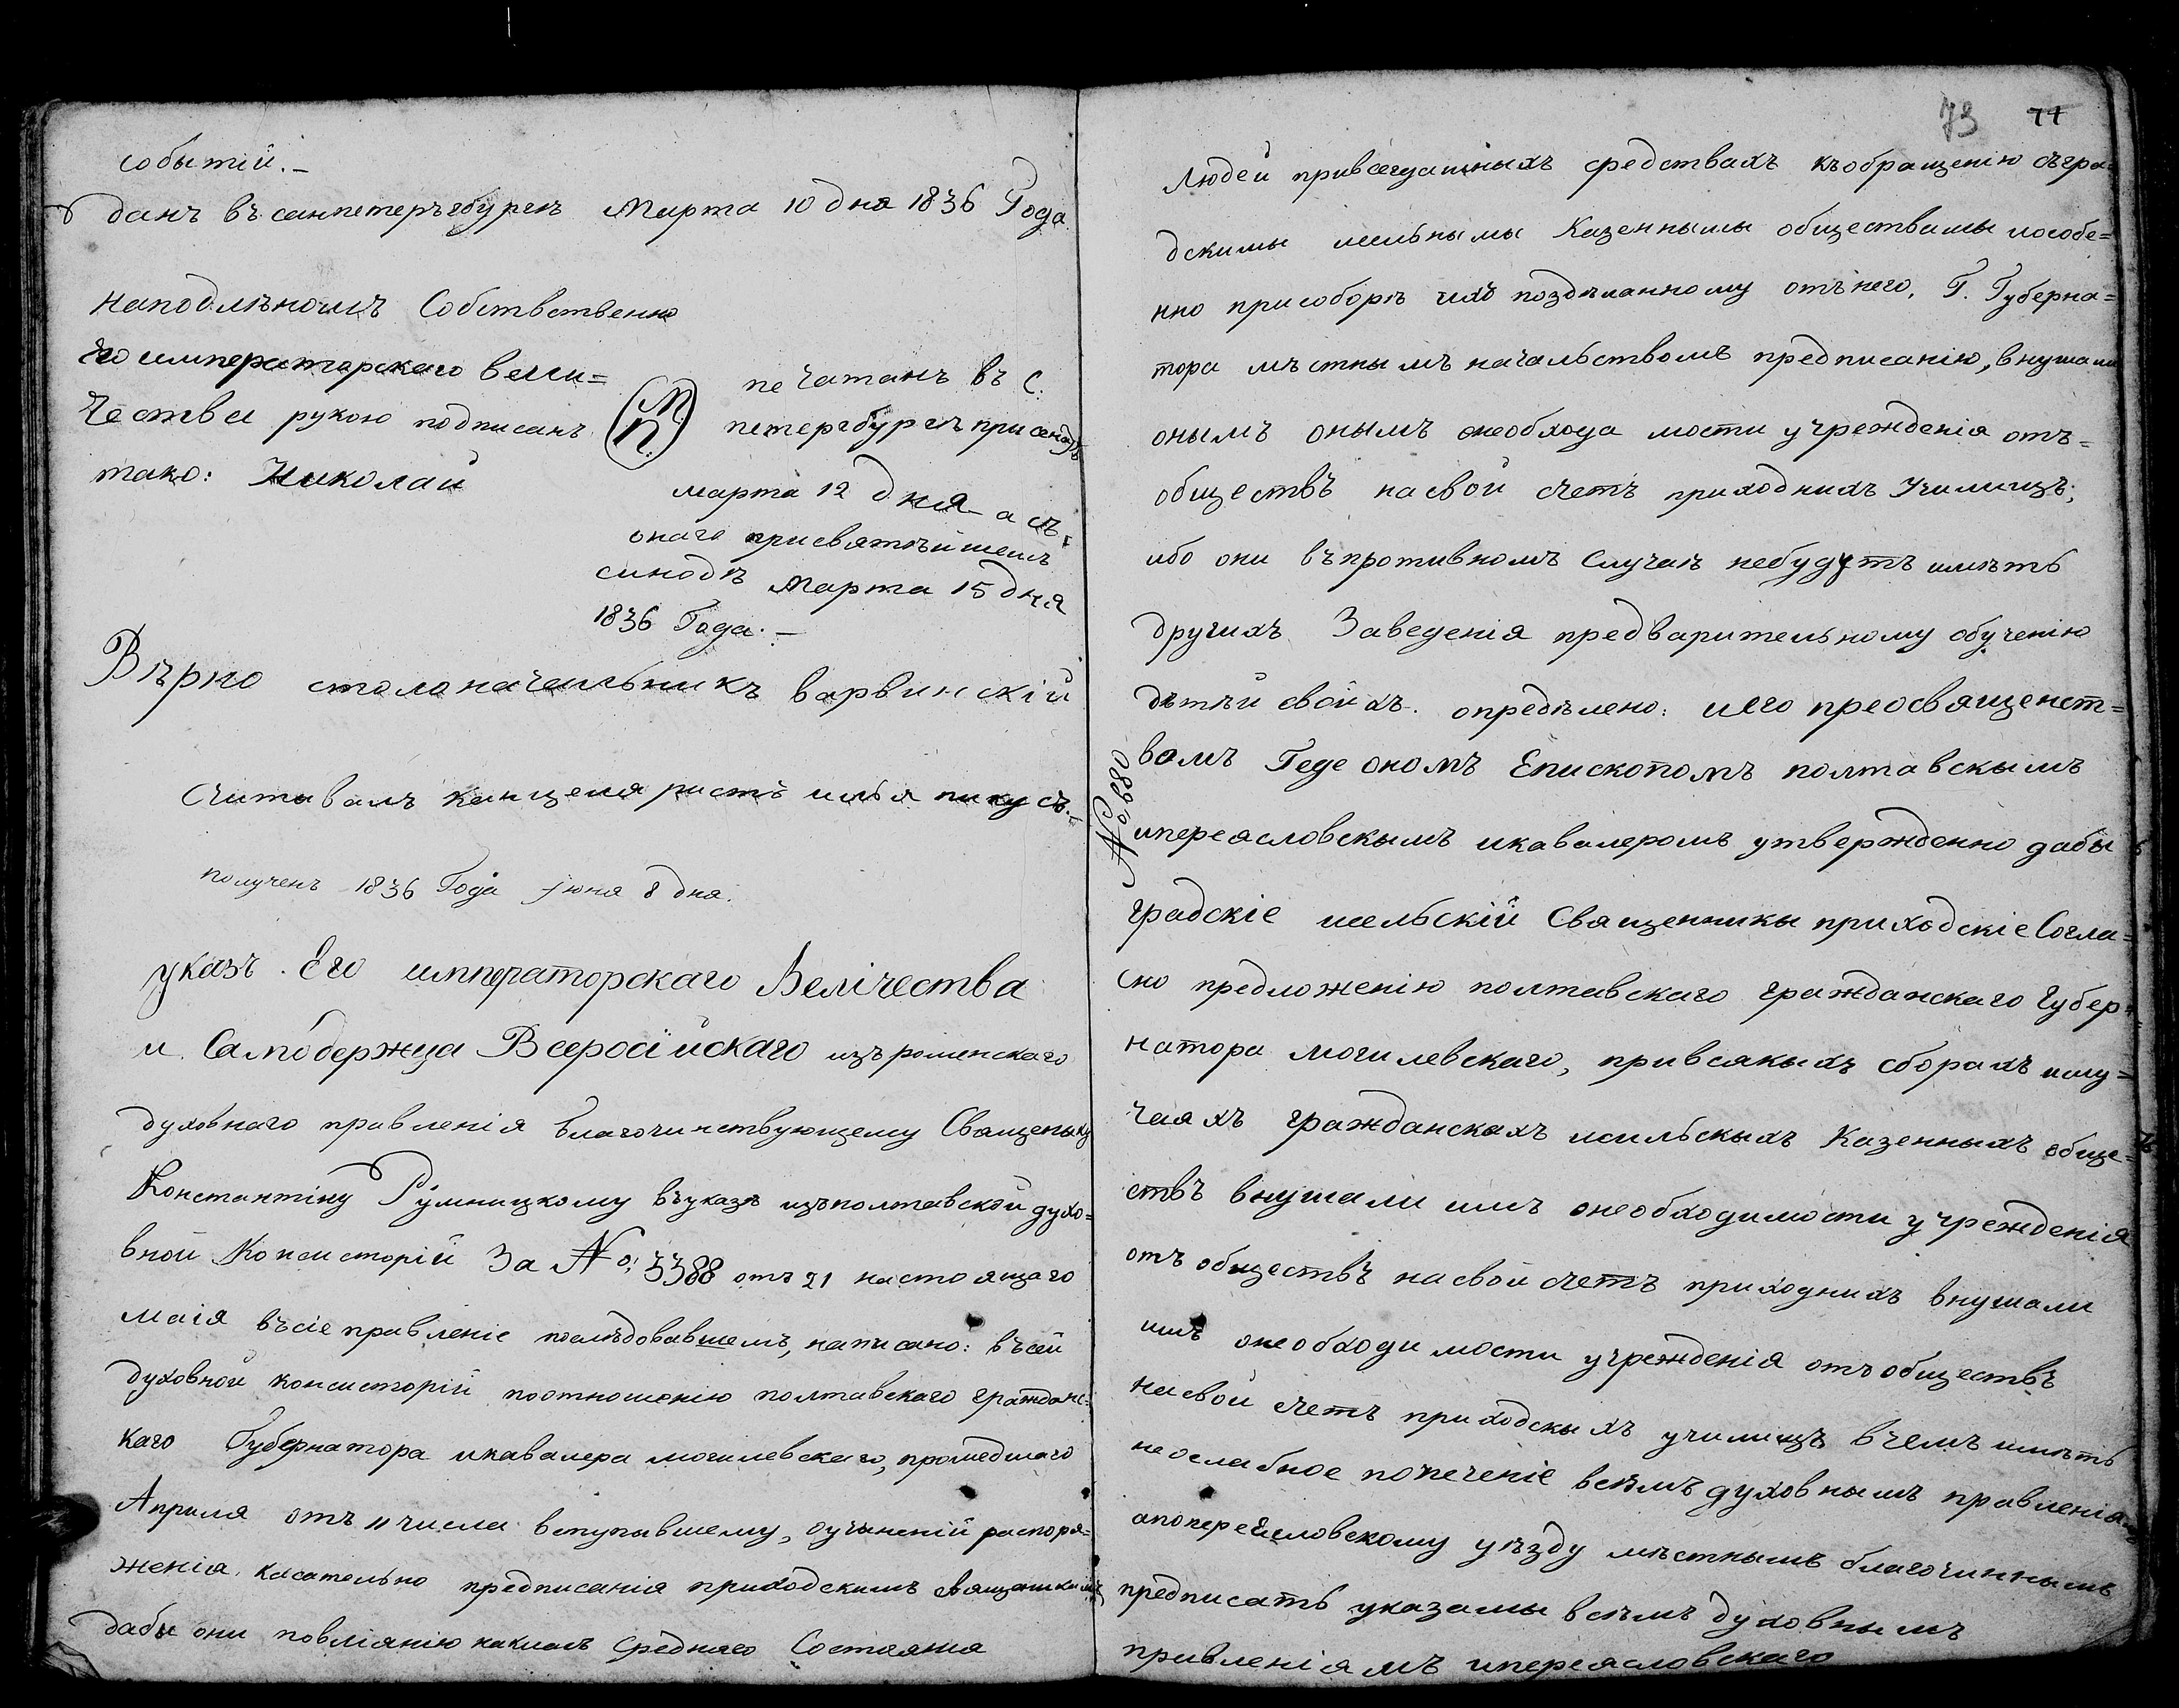 событій.–
данъ въ санпетеръбургѣ Марта 10 дня 1836 Года
наподлѣномъ Собственно
Его императорскаго вели=
чества рукою подписанъ
тако: Николай
М.
П.
печатанъ въ С.
петербургѣ при сенатѣ
марта 12 дня а съ
онаго присвятѣйшемъ
синодѣ Марта 15 дня
1836 Года.–
Вѣрно столоначальникъ варвинскій
Считывалъ канцеляристъ илья
полученъ 1836 Года Іюня 8 дня.
указъ. Его императорскаго Велічества
и Самодержца Всеросійскаго изъ роменскаго
духовнаго правленія благочинствующему Священику
Константіну Румницкому въуказѣ изъполтавской духо=
вной Консисторій За №: 3388 отъ 21 настоящаго
маія въсіе правленіе послѣдовавшемъ, написано: въсей
духовной консисторій поотношенію полтавского гражданс=
каго Губернатора икавалера могилевскаго, прошедшаго
Апреля отъ 11 числа вступившему, оучиненій распоря=
женія касательно предписанія приходскимъ священикамъ
дабы они повліянію накласъ Средняго Состоянія
73 77
Людей привсегдашныхъ средствахъ къобращенію съгра=
дскимы исельнымы Казеннымы обществамы иособе=
нно присоборѣ ихъ поздѣланному отънего, Г. Губерна=
тора мѣстнымъ начальствомъ предписанію, внушали
онымъ онымъ онеобхода мости учрежденія отъ=
обществъ насвой счетъ приходнихъ Училищъ;
ибо они въпротивномъ Случаѣ небудутъ имѣть
другихъ Заведенія предварительному обученію
дѣтѣй свойхъ. опредѣлено: иего преосвященст=
вомъ Гедеономъ Епископомъ полтавскымъ
№ 680
ипереясловскымъ икавалеромъ утвержденно дабы
градскіе исельскій Священники приходскіе Согла=
сно предложенію полтавскаго гражданскаго Губер=
натора могилевскаго, привсякыхъ сборахъ ислу=
чаяхъ гражданскахъ исильскыхъ Казенныхъ обще=
ствъ внушали имъ онеобходимости учрежденія
отъ обществъ насвой счетъ приходнихъ внушали
имъ онеобходи мости учрежденія отъ обществъ
насвой счетъ приходскыхъ училищъ вчемъ имѣть
неослабное попеченіе всѣмъ духовнымъ правленіямъ
апопереясловскому уѣзду мѣстнымъ благочиннымъ
предписать указамы всѣмъ духовнымъ
правленіямъ ипереясловскаго